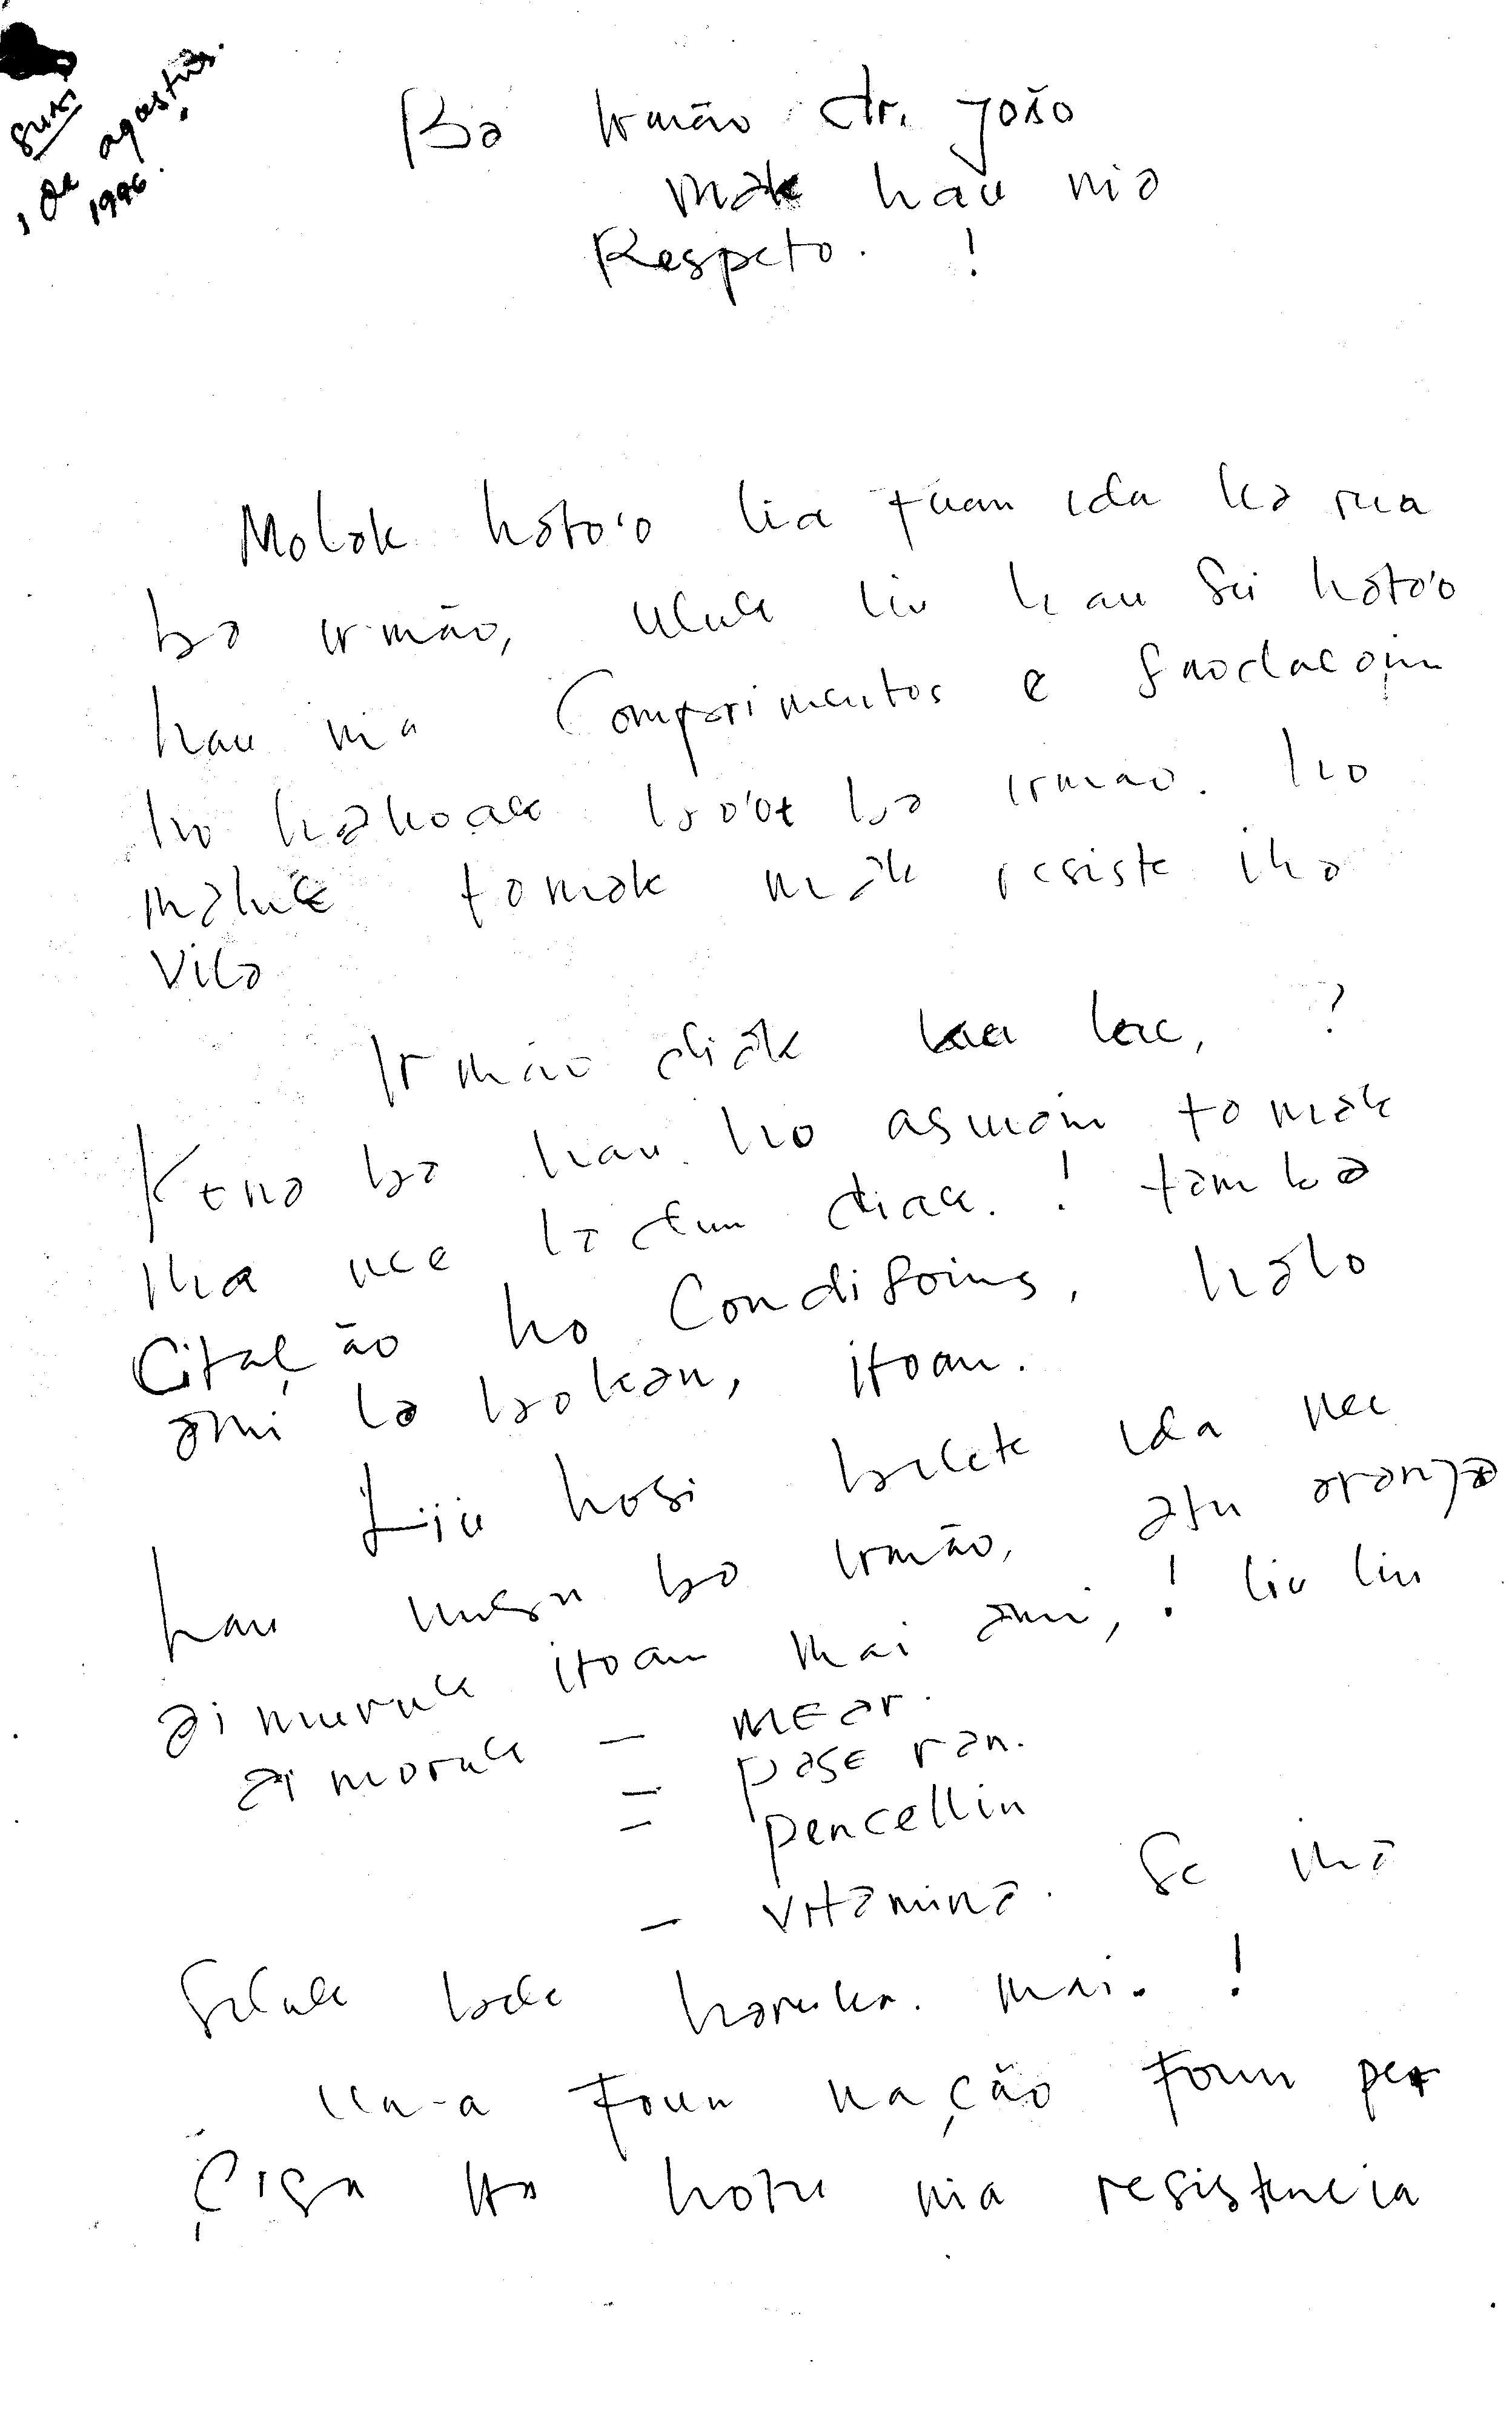 Susi
1 de agastus.
1996.
Ba Irmão dr. João
mak hau nia
Respeto. !
Molok hato'o lia fuan ida ka rua
ba irmão, uluk liu hau sei hato'o
hau nia Comprimentos e saodacoim
ho hakoak bo'ot ba irmao. ho
maluk tomak mak resiste iha
Vila
Irmão diak ka lae, ?
Kona ba hau ho asuwain tomak
iha nee la dun diak. ! tamba
Citação ho Condisoins, halo
ami la bokan, itoan.
Liu hosi belete ida nee
hau husu ba irmão, atu aranja
ai muruk itoan mai ami, ! liu liu
ai moruk - mear.
= pase ran.
- pencellin
- vitamina. Se iha
Seluk bele haruka. mai. !
Foun nação Foun per
Ita hotu nia resistencia